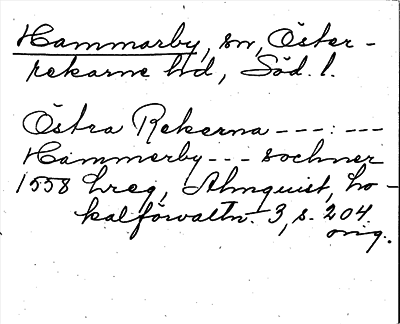 Hammarby, sn, Öster-
rekarne hd, Söd. l.
Östra Rekerna ---:---
Hammerby --- sochner
1558 hreg, Almquist, Lo-
kalförvaltn. 3, s. 204.
orig.